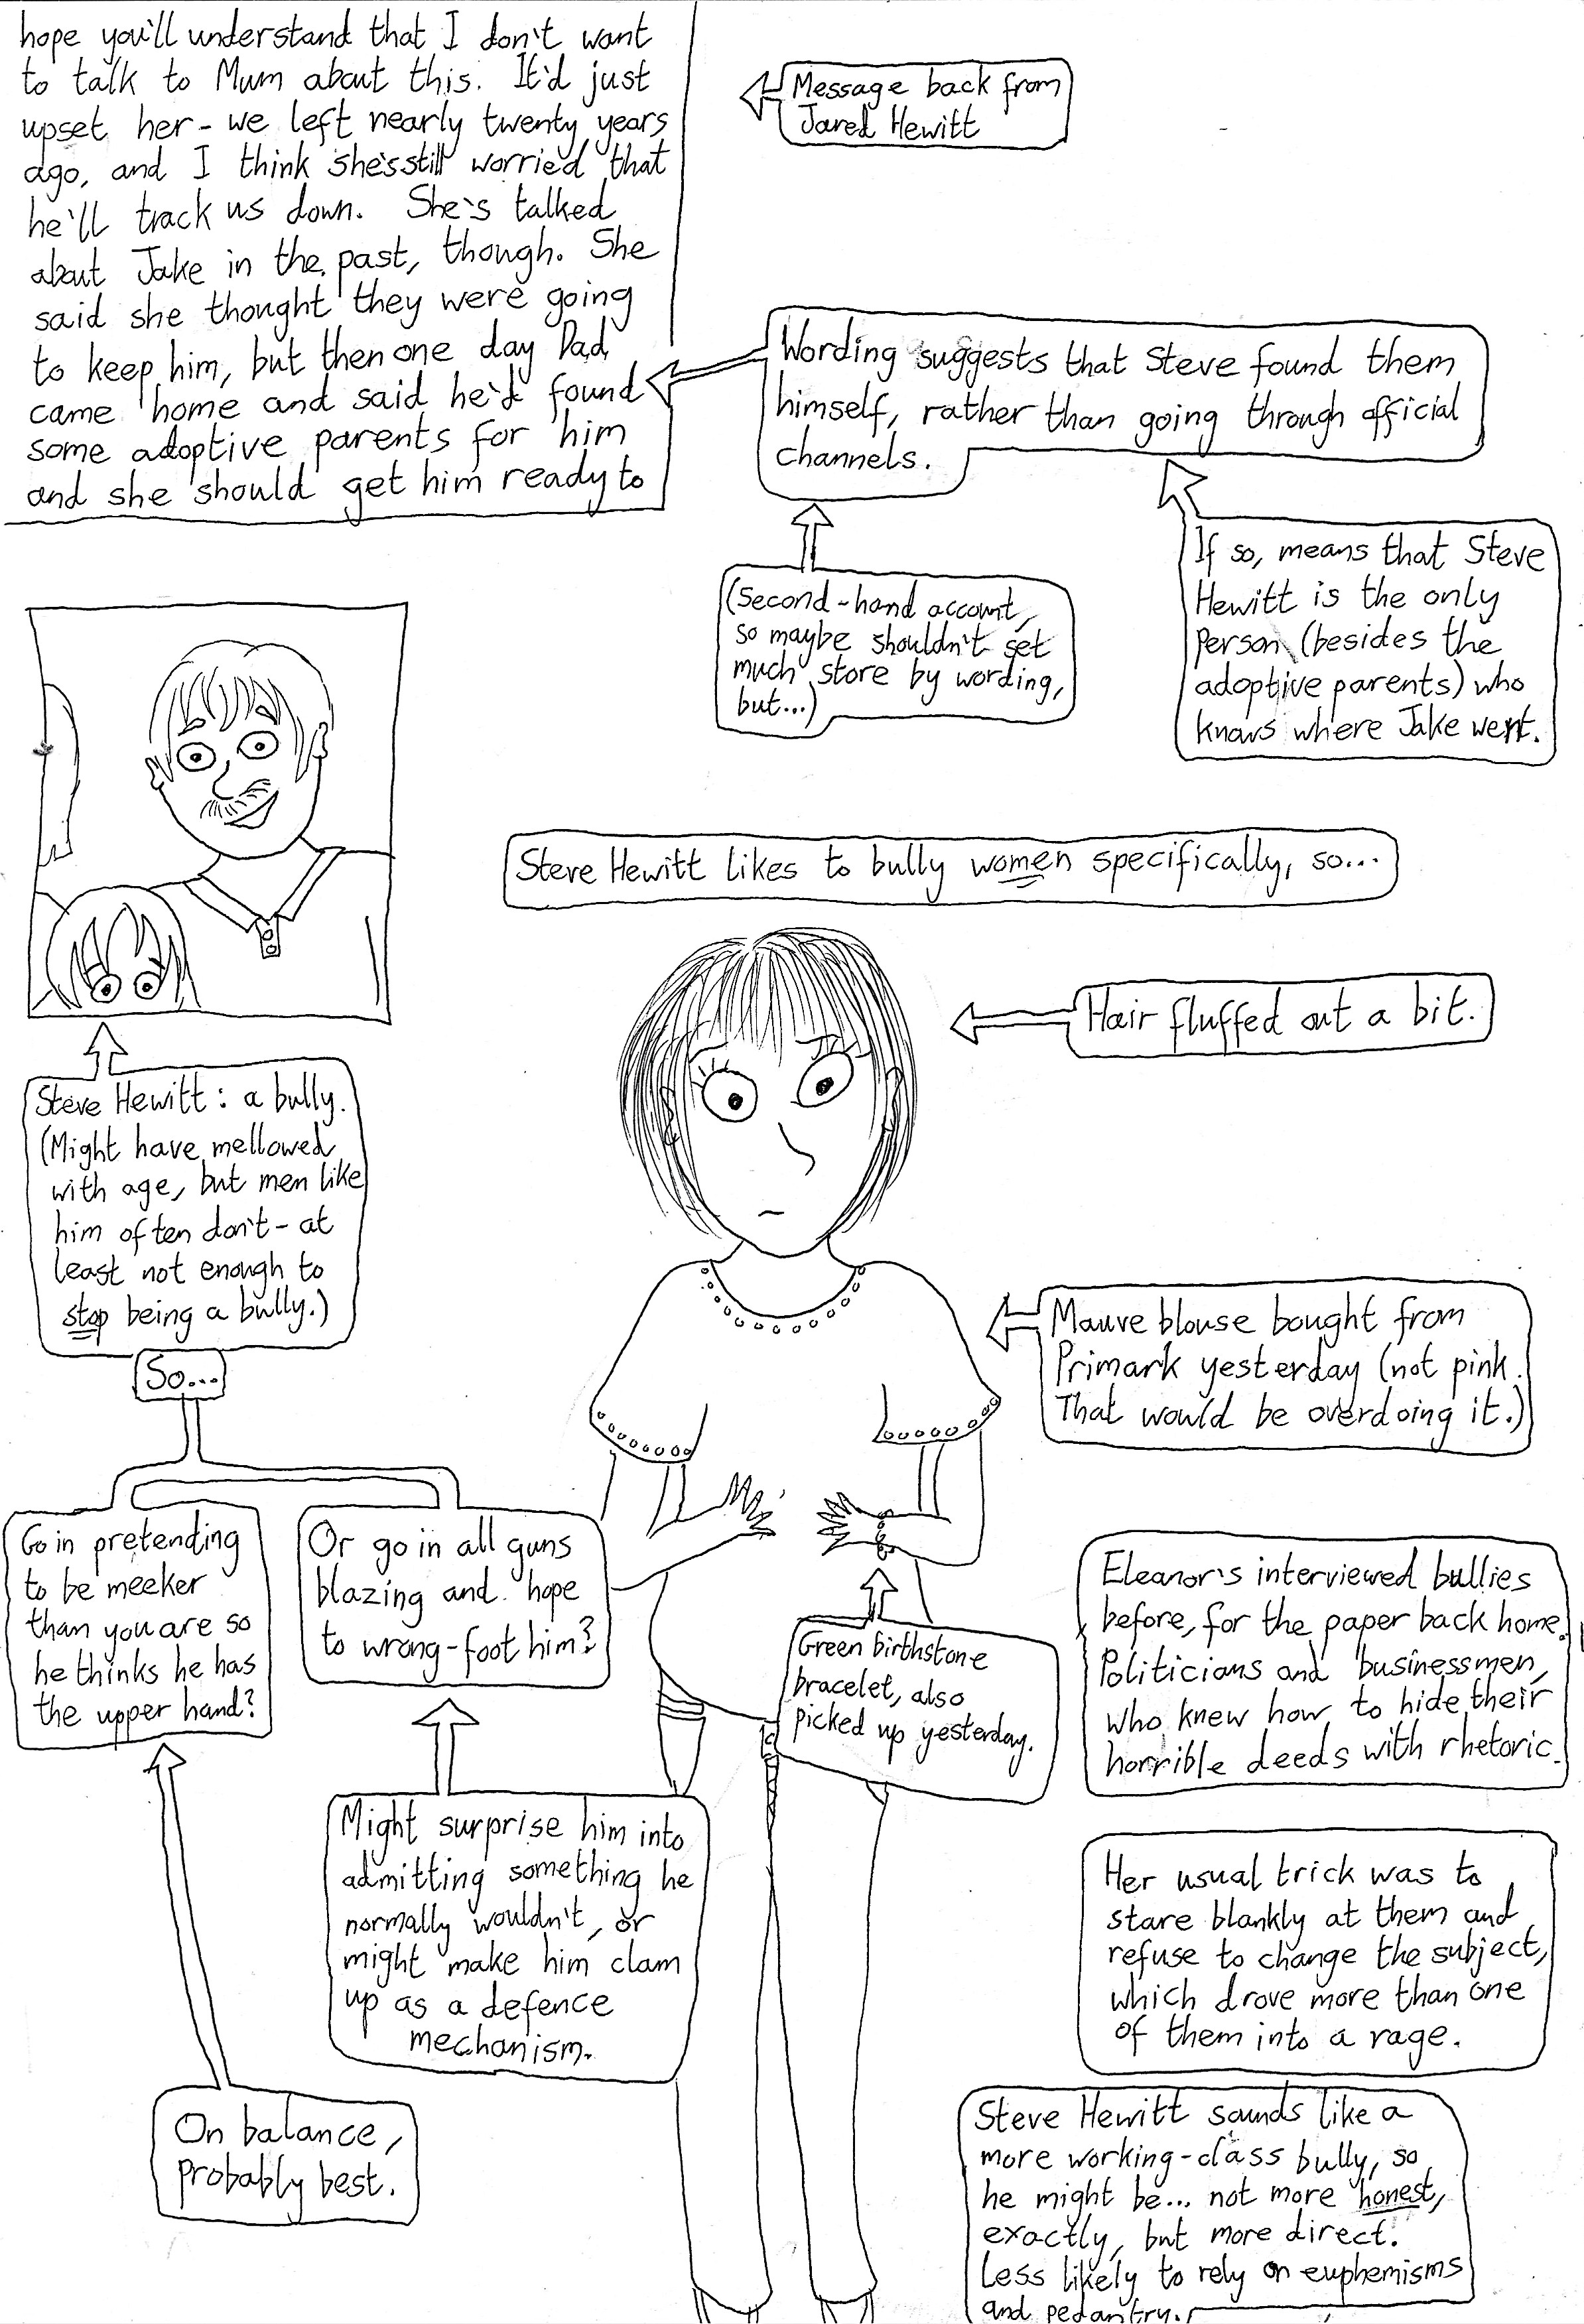 hope you'll understand that I don't want
to talk to Mum about this. It'd just
upset her - we left nearly twenty years
ago, and I think she's still worried that
he'll track us down. She's talked
about Jake in the past, though. She
said she thought they were going
to keep him, but then one day Dad
came home and said he'd found
some adoptive parents for him
and she should get him ready to
Message back from
Jared Hewitt
Wording suggests that Steve found them
himself, rather than going through official
channels.
(Second-hand account,
so maybe shouldn't set
much store by wording,
but...)
If so, means that Steve
Hewitt is the only
person (besides the
adoptive parents) who
knows where Jake went.
Steve Hewitt likes to bully women specifically, so...
Hair fluffed out a bit.
Steve Hewitt: a bully.
(Might have mellowed
with age, but men like
him often don't - at
least not enough to
stop being a bully.)
So...
Go in pretending
to be meeker
than you are so
he thinks he has
the upper hand?
Or go in all guns
blazing and hope
to wrong-foot him?
Might surprise him into
admitting something he
normally wouldn't, or
might make him clam
up as a defence
mechanism.
On balance,
probably best.
Mauve blouse bought from
Primark yesterday (not pink.
That would be overdoing it.)
Green birthstone
bracelet, also
picked up yesterday.
Eleanor's interviewed bullies
before, for the paper back home.
Politicians and businessmen,
who knew how to hide their
horrible deeds with rhetoric.
Her usual trick was to
stare blankly at them and
refuse to change the subject,
which drove more than one
of them into a rage.
Steve Hewitt sounds like a
more working-class bully, so
he might be... not more honest,
exactly, but more direct.
Less likely to rely on euphemisms
and pedantry.